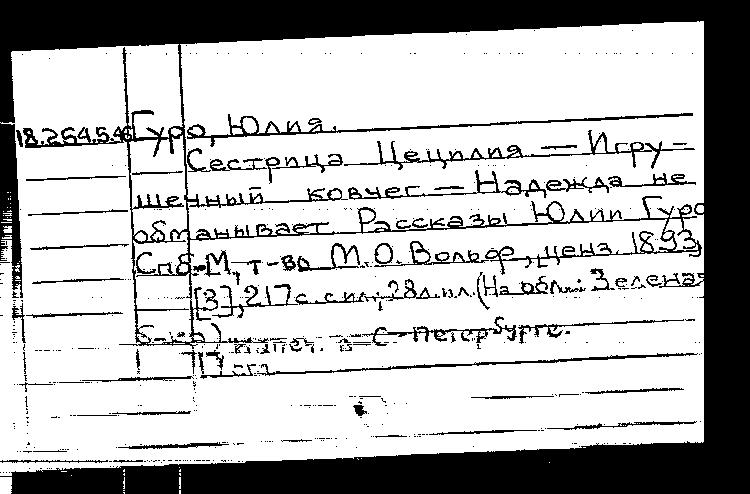 18.264.5.46 Гуро, Юлия.
Сестрица Цецилия. — Игру-
шечный ковчег. — Надежда не
обманывает. Рассказы Юлии Гуро
Спб.-М, т-во М.О. Вольф, ценз. 1893,
[3], 217 с. с ил.; 28 л. ил. (На обл.: Зеленая
б-ка) напеч. в С-Петербурге.